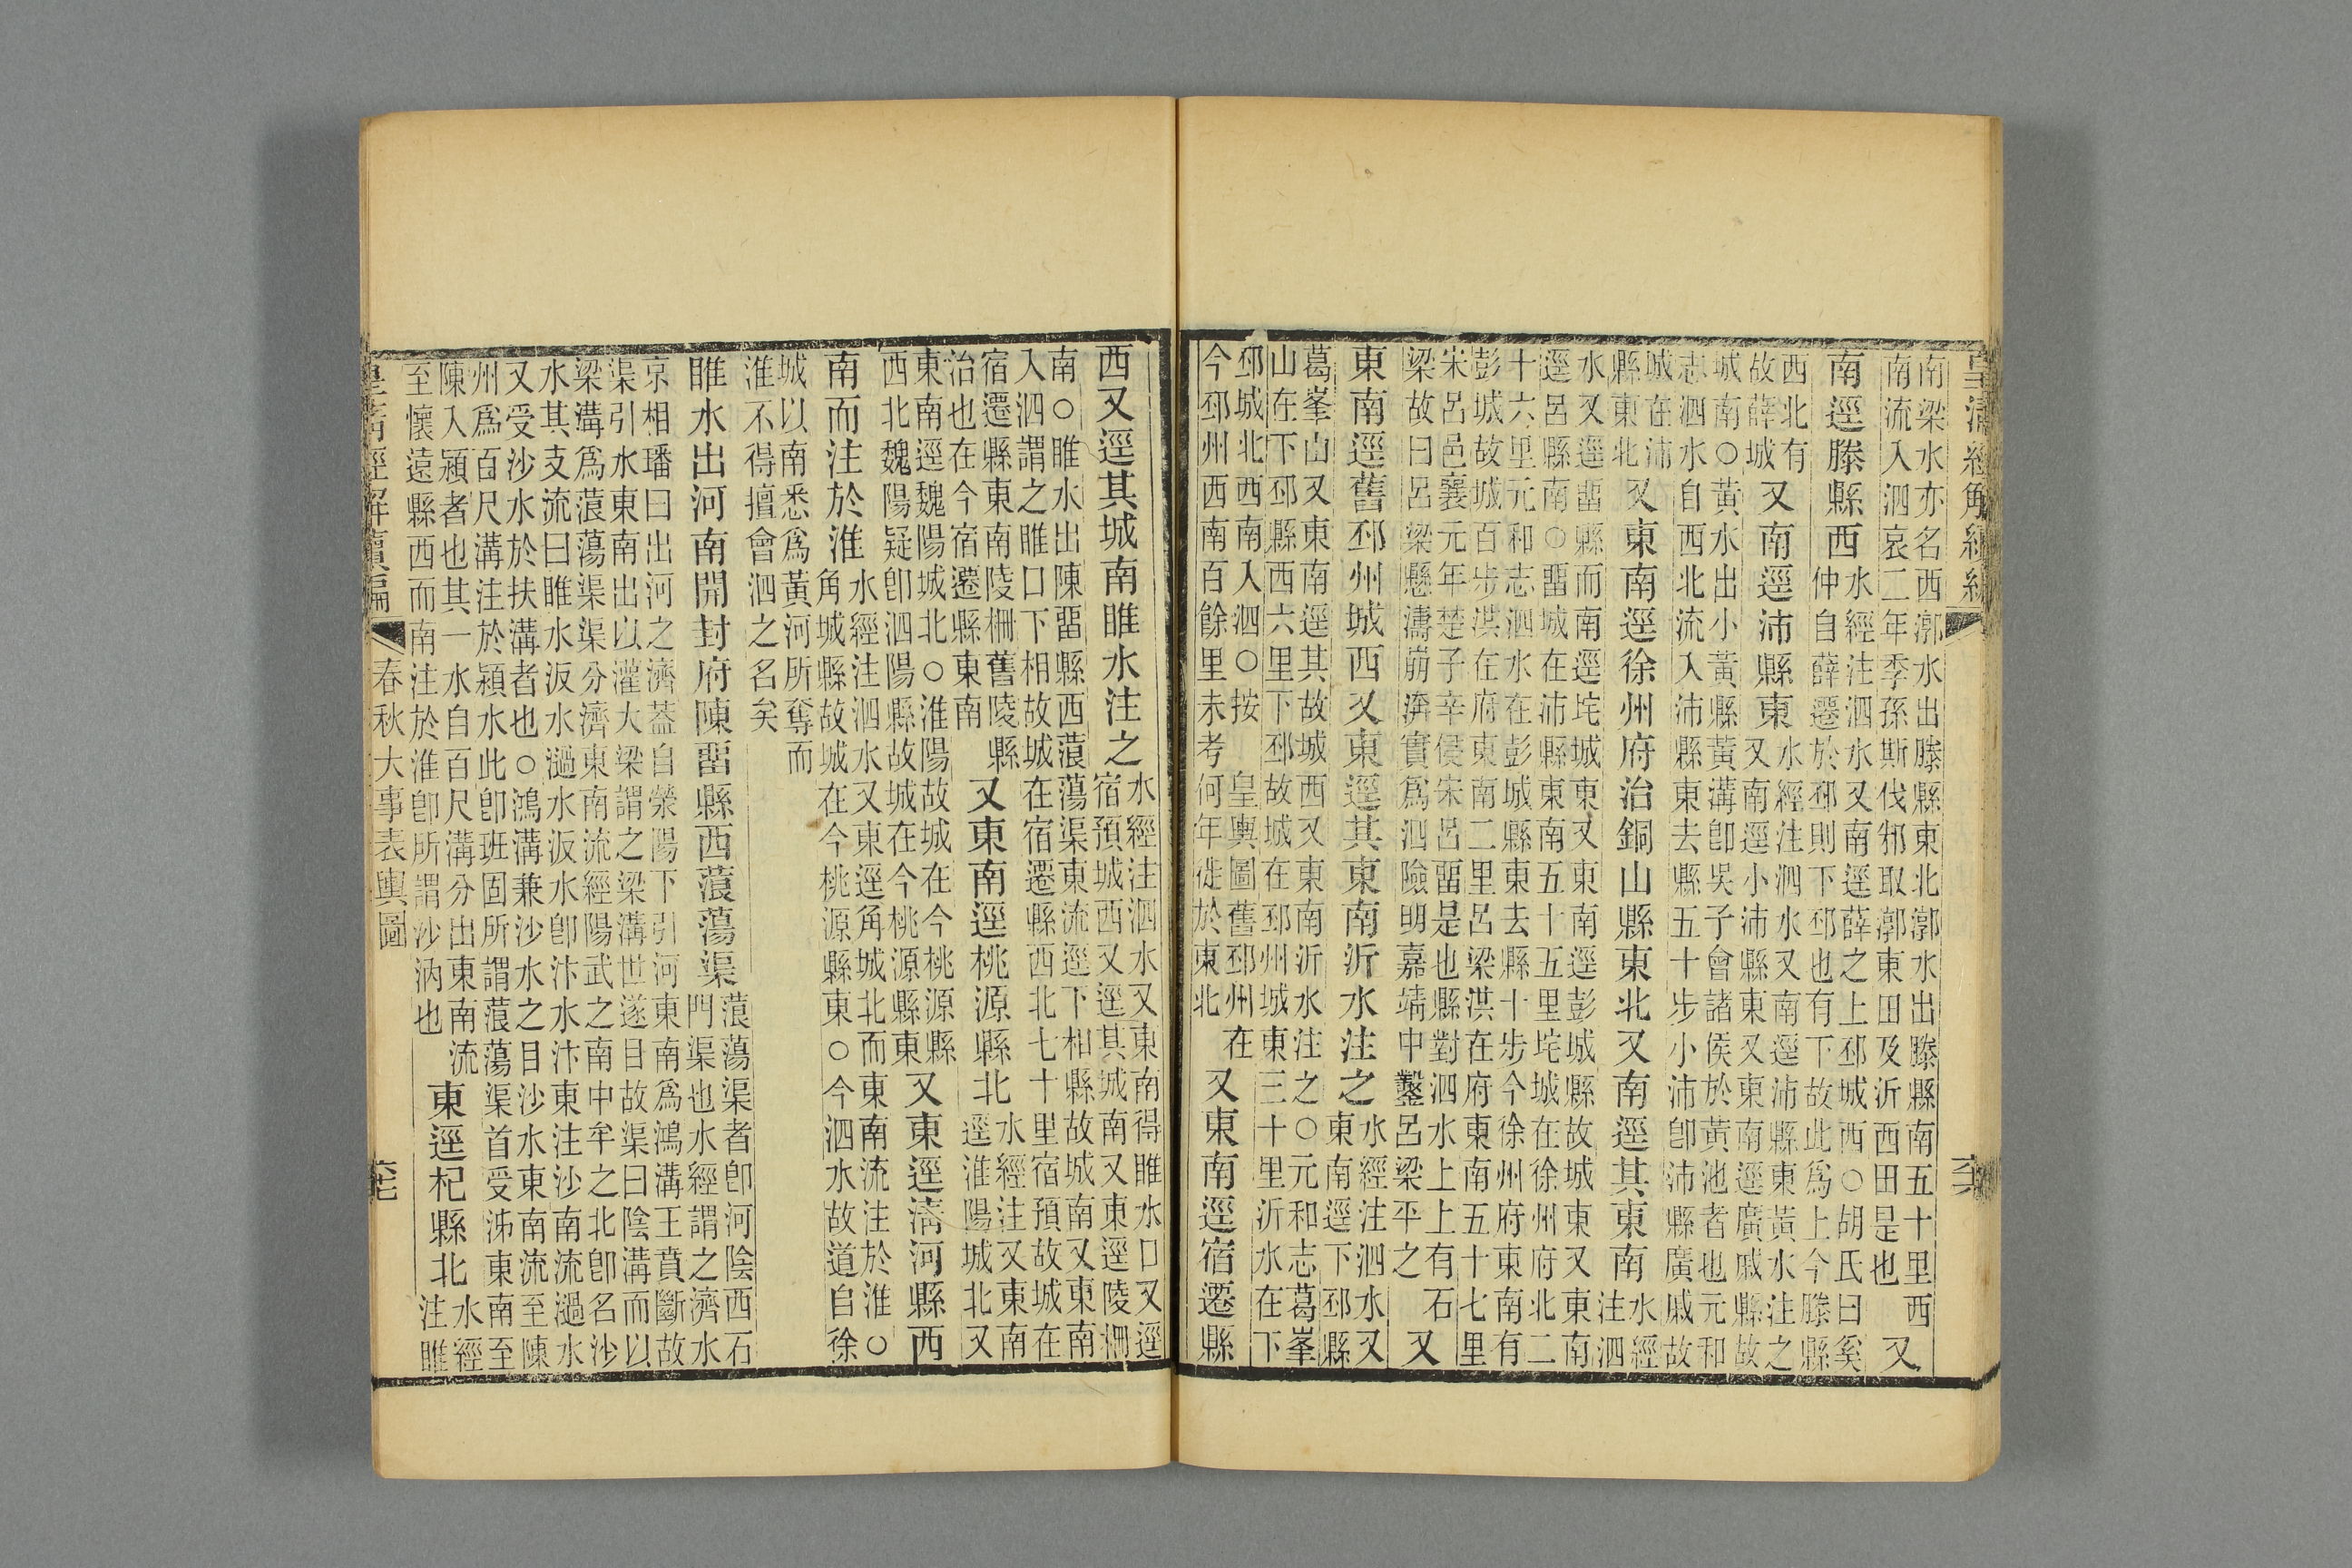 皇清經解續編
六六
南梁水亦名西漷水出滕縣東北漷水出滕縣南五十里西
南流入泗哀二年季孫斯伐邾取漷東田及沂西田是也
又
南逕滕縣西
水經注泗水又南逕薛之上邳城西○胡氏曰奚
仲自薛遷於邳則下邳也有下故此爲上今滕縣
西北有
故薛城
又南逕沛縣東
水經注泗水又南逕沛縣東黃水注之
又南逕小沛縣東又東南逕廣戚縣故
城南○黃水出小黃縣黃溝卽吳子會諸侯於黃池者也元和
志泗水自西北流入沛縣東去縣五十步小沛卽沛縣廣戚故
城在沛
縣東北
又東南逕徐州府治銅山縣東北又南逕其東南
水經
注泗
水又逕畱縣而南逕垞城東又東南逕彭城縣故城東又東南
逕呂縣南○畱城在沛縣東南五十五里垞城在徐州府北二
十六里元和志泗水在彭城縣東去縣十步今徐州府東南有
彭城故城百步洪在府東南二里呂梁洪在府東南五十七里
宋呂邑襄元年楚子辛侵宋呂畱是也縣對泗水上上有石
梁故曰呂梁懸濤崩濟實爲泗險明嘉靖中鑿呂梁平之
又
東南逕舊邳州城西又東逕其東南沂水注之
水經注泗水又
東南逕下邳縣
葛峯山又東南逕其故城西又東南沂水注之○元和志葛峯
山在下邳縣西六里下邳故城在邳州城東三十里沂水在下
邳城北西南入泗○按 皇輿圖舊邳州在
今邳州西南百餘里未考何年徙於東北
又東南逕宿遷縣
西又逕其城南睢水注之
水經注泗水又東南得睢水口又逕
宿預城西又逕其城南又東逕陵柵
南○睢水出陳畱縣西蒗蕩渠東流逕下相縣故城南又東南
入泗謂之睢口下相故城在宿遷縣西北七十里宿預故城在
宿遷縣東南陵柵舊陵縣
治也在今宿遷縣東南
又東南逕桃源縣北
水經注又東南
逕淮陽城北又
東南逕魏陽城北○淮陽故城在今桃源縣
西北魏陽疑卽泗陽縣故城在今桃源縣東
又東逕淸河縣西
南而注於淮
水經注泗水又東逕角城北而東南流注於淮○
角城縣故城在今桃源縣東○今泗水故道自徐
城以南悉爲黃河所奪而
淮不得擅會泗之名矣
睢水出河南開封府陳畱縣西蒗蕩渠
蒗蕩渠者卽河陰西石
門渠也水經謂之濟水
京相璠曰出河之濟葢自滎陽下引河東南爲鴻溝王賁斷故
渠引水東南出以灌大梁謂之梁溝世遂目故渠曰陰溝而以
梁溝爲蒗蕩渠渠分濟東南流經陽武之南中牟之北卽名沙
水其支流曰睢水汳水濄水汳水卽汴水汴東注沙南流濄水
又受沙水於扶溝者也○鴻溝兼沙水之目沙水東南流至陳
州爲百尺溝注於潁水此卽班固所謂蒗蕩渠首受泲東南至
陳入潁者也其一水自百尺溝分出東南流
至懷遠縣西而南注於淮卽所謂沙汭也
東逕杞縣北
水經
注睢
皇清經解續編
春秋大事表輿圖
六七